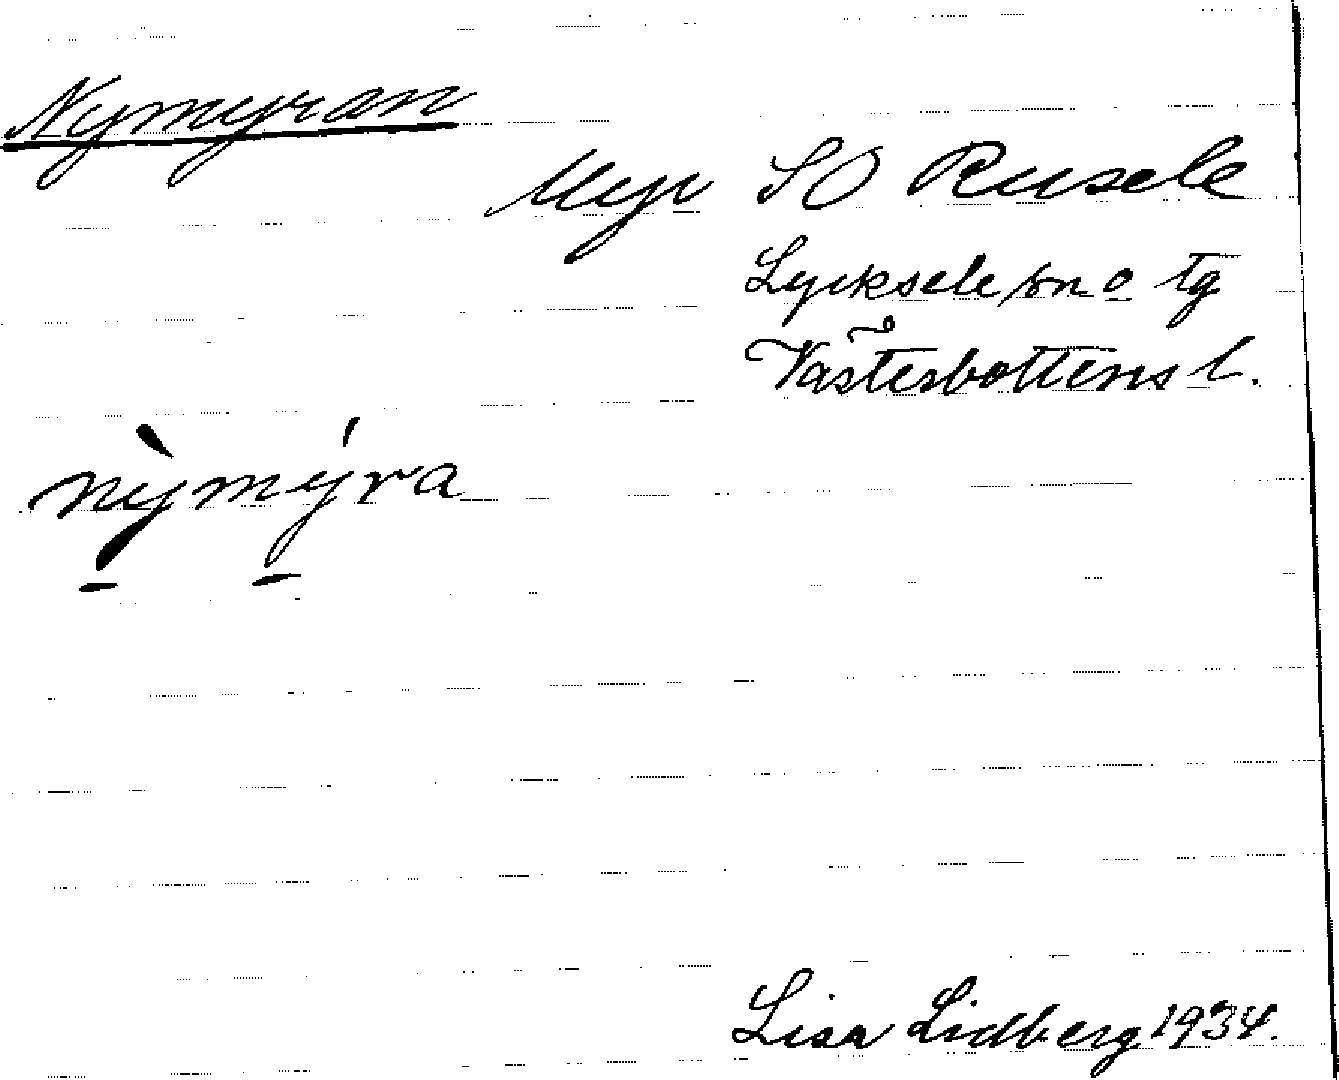 Nymyran
Myr SO Rusele
Lycksele sn o tg
Västerbottens l.
nỳmýra
Lisa Lidberg 1934.